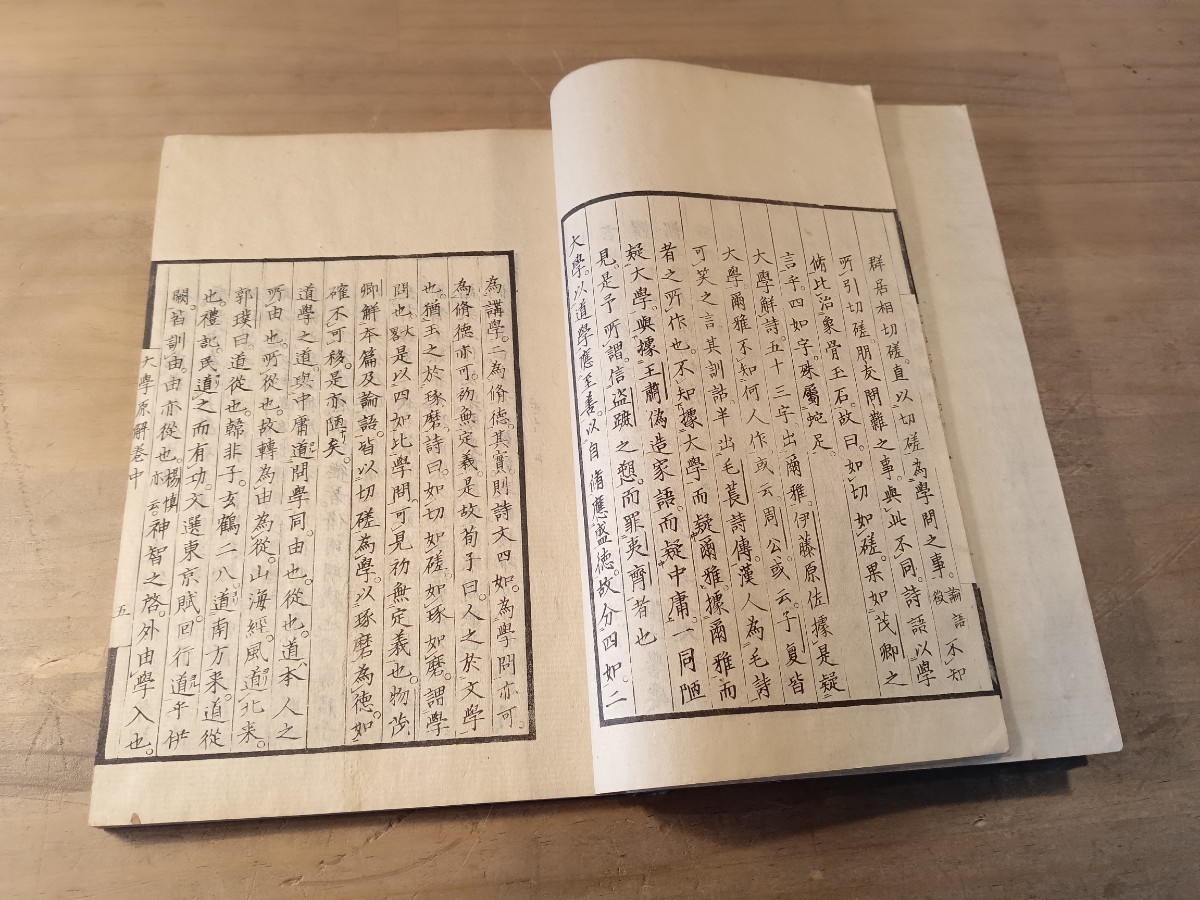 群居相切磋。直以切磋為學問之事。論語徵不知
所引切磋朋友問難之事。與此不同。詩語以學
脩比治象骨玉石。故曰。如切如磋。果如茂卿之
言乎。四如字。殊屬蛇足。
大學解詩。五十三字出爾雅。伊藤原佐據是疑
大學。爾雅不知何人作。或云周公。或云子夏。皆
可笑之言。其訓詁半出毛萇詩傳。漢人為毛詩
者之所作也。不知據大學而疑爾雅。據爾雅而
疑大學。與據王肅偽造家語。而疑中庸。一同陋
見。是予所謂。信盜蹠之愬。而罪夷齊者也
大學。以道學應至善。以自脩應盛德。故分四如。二
為講學。二為脩德。其實則詩文四如。為學問亦可。
為脩德亦可。初無定義。是故荀子曰。人之於文學
也。猶玉之於琢磨。詩曰。如切如磋。如琢如磨。謂學
問也。是以四如比學問。可見初無定義也。物茂
卿解本篇及論語。皆以切磋為學。以琢磨為德。如
確不可移。是亦陋矣。
道學之道。與中庸道問學同。由也。從也。道本人之
所由也。所從也。故轉為由為從。山海經。風道北来。
郭璞曰道從也。韓非子。玄鶴二八道南方来。道從
也。禮記。民道之而有功。文選東京賦。回行道乎伊
闕。皆訓由。由亦從也。楊慎亦云。神智之啓。外由學入也。
大學原解卷中
五